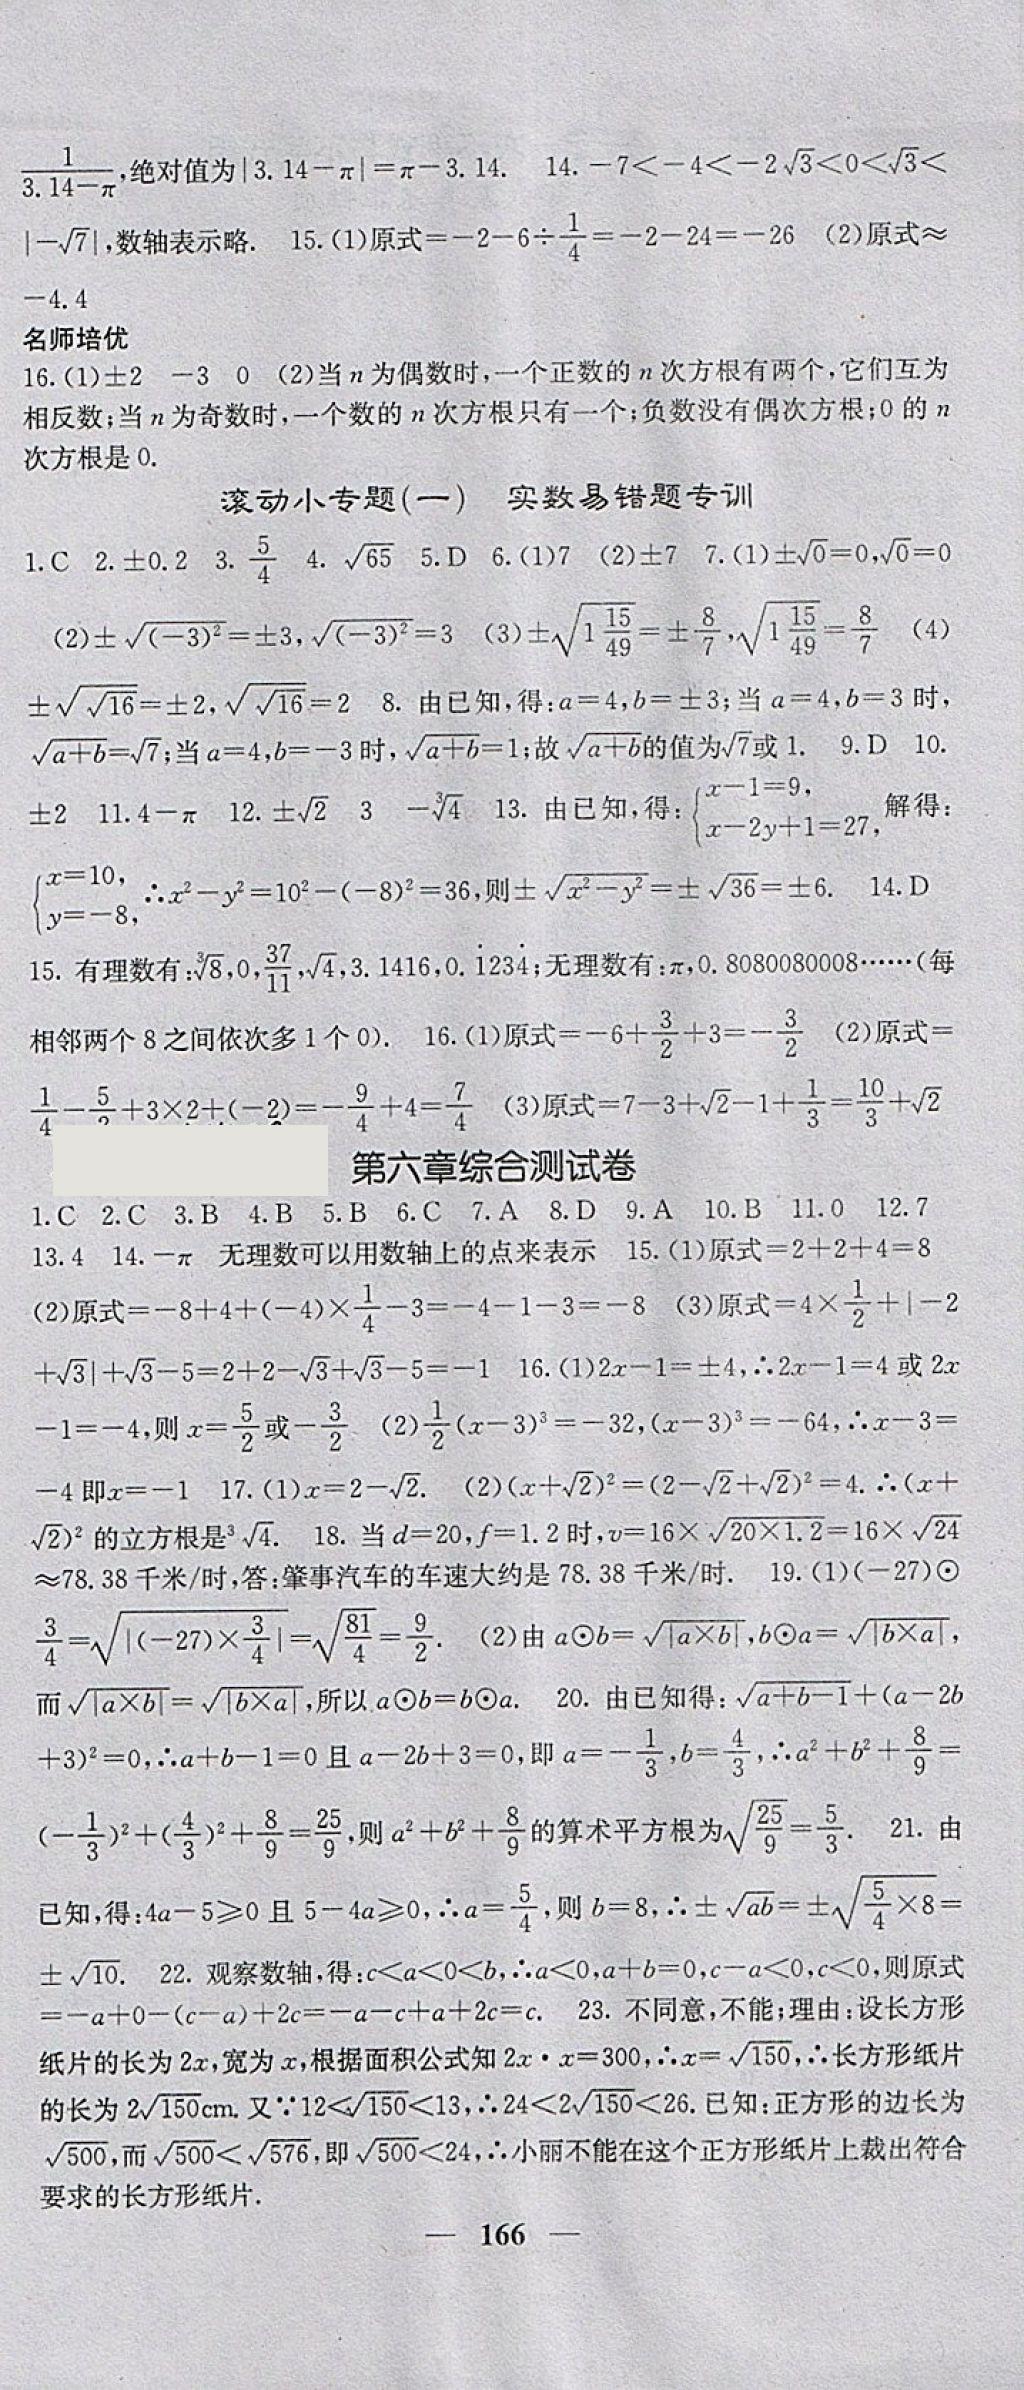 1/(3.14－π),绝对值为|3.14－π|＝π－3.14.　14.－7＜－4＜－2√3＜0＜√3＜
|－√7|,数轴表示略.　15.(1)原式＝－2－6÷1/4＝－2－24＝－26　(2)原式≈
－4.4
名师培优
16.(1)±2　－3　0　(2)当n为偶数时,一个正数的n次方根有两个,它们互为
相反数;当n为奇数时,一个数的n次方根只有一个;负数没有偶次方根;0的n
次方根是0.
滚动小专题(一)　实数易错题专训
1.C　2.±0.2　3.5/4　4.√65　5.D　6.(1)7　(2)±7　7.(1)±√0＝0,√0＝0
(2)±√(－3)²＝±3,√(－3)²＝3　(3)±√(1 15/49)＝±8/7,√(1 15/49)＝8/7　(4)
±√√16＝±2,√√16＝2　8.由已知,得:a＝4,b＝±3;当a＝4,b＝3时,
√(a＋b)＝√7;当a＝4,b＝－3时,√(a＋b)＝1;故√(a＋b)的值为√7或1.　9.D　10.
±2　11.4－π　12.±√2　3　－³√4　13.由已知,得:{x－1＝9, x－2y＋1＝27,解得:
{x＝10, y＝－8,∴x²－y²＝10²－(－8)²＝36,则±√(x²－y²)＝±√36＝±6.　14.D
15.有理数有:³√8,0,37/11,√4,3.1416,0.1̇234̇;无理数有:π,0.8080080008……(每
相邻两个8之间依次多1个0).　16.(1)原式＝－6＋3/2＋3＝－3/2　(2)原式＝
1/4－5/2＋3×2＋(－2)＝－9/4＋4＝7/4　(3)原式＝7－3＋√2－1＋1/3＝10/3＋√2
第六章综合测试卷
1.C　2.C　3.B　4.B　5.B　6.C　7.A　8.D　9.A　10.B　11.0　12.7
13.4　14.－π　无理数可以用数轴上的点来表示　15.(1)原式＝2＋2＋4＝8
(2)原式＝－8＋4＋(－4)×1/4－3＝－4－1－3＝－8　(3)原式＝4×1/2＋|－2
＋√3|＋√3－5＝2＋2－√3＋√3－5＝－1　16.(1)2x－1＝±4,∴2x－1＝4或2x
－1＝－4,则x＝5/2或－3/2　(2)1/2(x－3)³＝－32,(x－3)³＝－64,∴x－3＝
－4即x＝－1　17.(1)x＝2－√2.　(2)(x＋√2)²＝(2－√2＋√2)²＝4.∴(x＋
√2)²的立方根是³√4.　18.当d＝20,f＝1.2时,v＝16×√(20×1.2)＝16×√24
≈78.38千米/时,答:肇事汽车的车速大约是78.38千米/时.　19.(1)(－27)⊙
3/4＝√|(－27)×3/4|＝√(81/4)＝9/2.　(2)由a⊙b＝√|a×b|,b⊙a＝√|b×a|,
而√|a×b|＝√|b×a|,所以a⊙b＝b⊙a.　20.由已知得:√(a＋b－1)＋(a－2b
＋3)²＝0,∴a＋b－1＝0且a－2b＋3＝0,即a＝－1/3,b＝4/3,∴a²＋b²＋8/9＝
(－1/3)²＋(4/3)²＋8/9＝25/9,则a²＋b²＋8/9的算术平方根为√(25/9)＝5/3.　21.由
已知,得:4a－5≥0且5－4a≥0,∴a＝5/4,则b＝8,∴±√ab＝±√(5/4×8)＝
±√10.　22.观察数轴,得:c＜a＜0＜b,∴a＜0,a＋b＝0,c－a＜0,c＜0,则原式
＝－a＋0－(c－a)＋2c＝－a－c＋a＋2c＝c.　23.不同意,不能;理由:设长方形
纸片的长为2x,宽为x,根据面积公式知2x·x＝300,∴x＝√150,∴长方形纸片
的长为2√150cm.又∵12＜√150＜13,∴24＜2√150＜26.已知:正方形的边长为
√500,而√500＜√576,即√500＜24,∴小丽不能在这个正方形纸片上裁出符合
要求的长方形纸片.
— 166 —